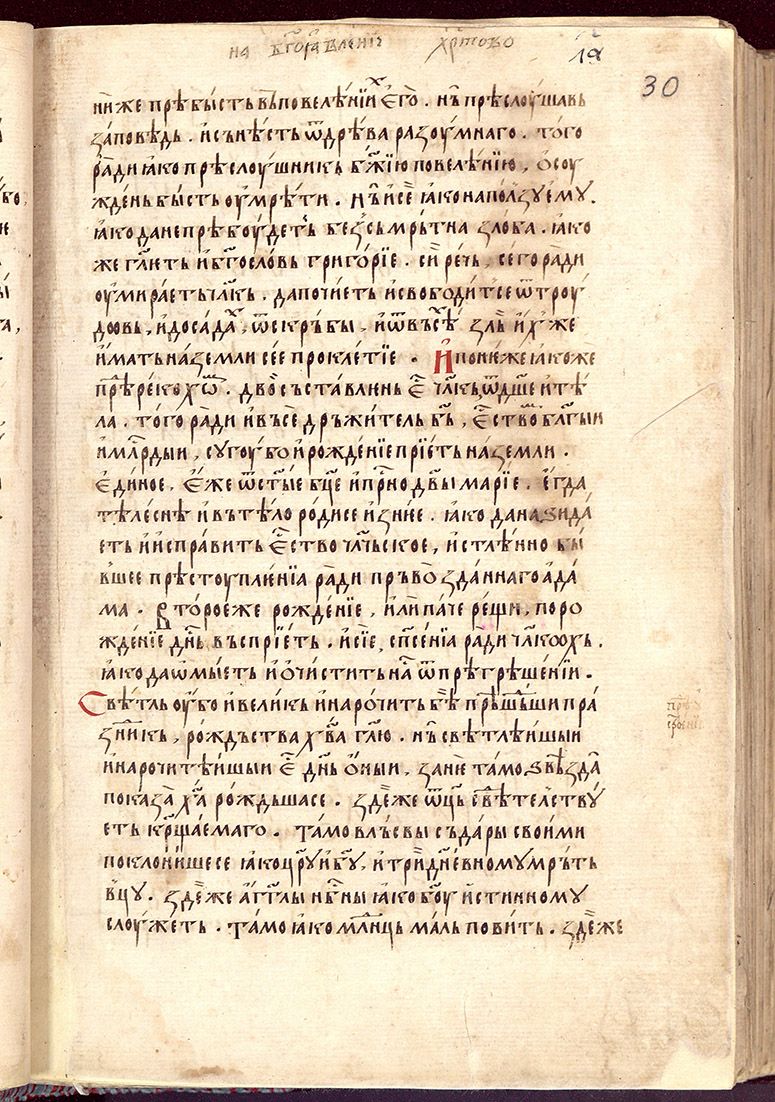 на бг҃оꙗвленїе хр҃тово
л҃а
30
ни́же прѣбы́сть въ повелѣ́нїих є҆го̀. нѫ прѣслоу́шавь
за́повѣдь. и҆ сънѣ́сть ѿ дрѣ́ва разоу́мнаго. то́го
ра́ди ꙗ҆́ко прѣслоу́шникь бж҃їю повелѣ́нїю, ѡ҆соу
жде́нь бы́сть оу҆мрѣ́ти. нь и҆ сїѐ ꙗ҆́ко на по́лзу є҆му̀.
ꙗ҆́ко да не прѣбоу́деть без̾смрь́тна зло́ба. ꙗ҆́ко
же гл҃еть и҆ бг҃осло́вь григо́рїе. си́ рѣчь, се́го ра́ди
оу҆мира́еть чл҃кь. да почи́еть и҆ свободи́тсе ѿ троу́
довь, и҆ доса́дь, ѿ скрь́бы, и҆ ѿ въсѣ́х зль и҆́хже
и҆́мать на землѝ сее прокле́тїе. И҆ поне́же ꙗ҆́коже
прѣ́реко́хѡм. дво̀съста́влень є҆́с чл҃кь, ѿ дш҃е и҆ тѣ́
ла. то́го ра́ди и҆ въсе́дрьжи́тель бь҃, є҆ст҃вѡм бл҃гыи
и҆ млр҃дыи, сугоу́бо и҆ рожде́нїе прїе́ть на землѝ.
є҆ди́ное, є҆́же ѿ ст҃ые бц҃е и҆ прⷭ҇но дв҃ы марїе. є҆гда̀
тѣле́снѣ и҆ въ тѣ́ло роди́се и҆з̾ не́е. ꙗ҆́ко да назида́
еть и҆ и҆спра́вить є҆ство̀ чл҃чьское, и҆стлѣ́нно бы́
вшее прѣстоупле́нїа ра́ди прьво̀зда́ннаго а҆да́
ма. Вторѡ́еже рожде́нїе, и҆лѝ па́че рещѝ, поро
жде́нїе дн҃ь въспрїе́ть. и҆ сїѐ, сп҃се́нїа ра́ди чл҃комь.
ꙗ҆́ко да ѡ҆мы́еть и҆ ѡ҆чи́стить на́с ѿ прѣгрѣше́нїи.
Свѣ́тль оу҆́бо и҆ вели́кь и҆ наро́чить бѣ̀ прѣ́шьдши пра́
здникь, рождьства̀ хв҃а гл҃ю. нь свѣтлѣ́ишыи
и҆ наро́читѣ́ишыи є҆́с дн҃ь ѻ҆́ныи, занѐ та́мо ѕвѣзда̀
показа̀ ха҃ рождьшасе. зде́же ѿц҃ь свѣ́телству́
еть крⷭ҇ща́емаго. та́мо влъсвы̀ съ да́ры свои́ми
поклони́шесе ꙗ҆́ко цр҃у и҆ бг҃у, и҆ трⷣине́вному мрьть
вцу̀. зде́же а҆́гг҃лы нб҃ны ꙗ҆́ко бг҃оу и҆́стинному
слоу́жеть. та́мо ꙗ҆́ко мла́днць маль пови́ть. зде́же